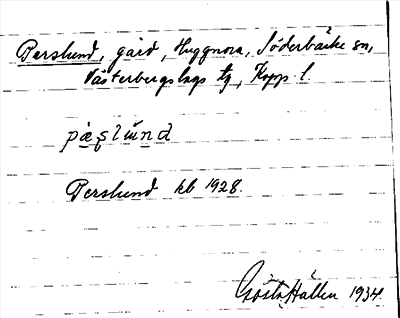 Perslund, gård, Huggnora, Söderbärke sn,
Västerbergslags tg, Kopp. l.
pæ̀ʂlùnd
Perslund kb 1928.
Gösta Hallen 1934.